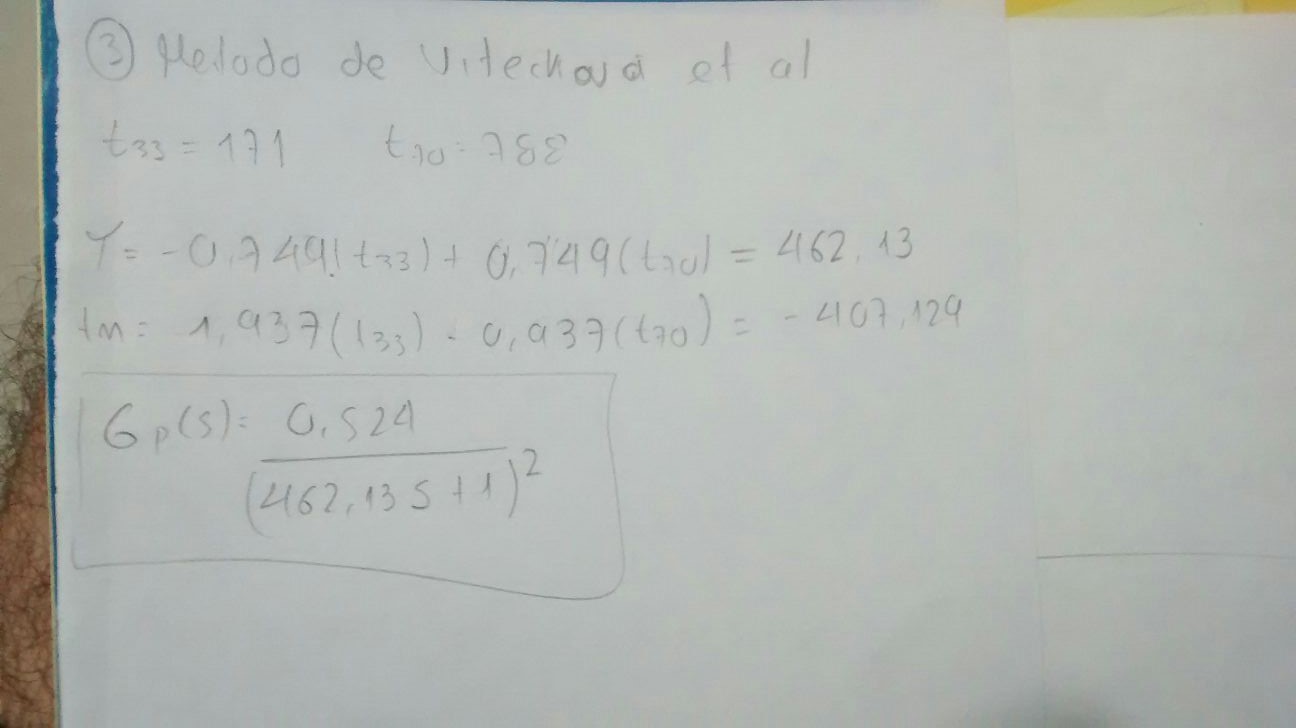 ③ Metodo de Vitecková et al
t33 = 171 t70 = 788
T = -0,749(t33) + 0,749(t70) = 462,13
tm = 1,937(t33) - 0,937(t70) = -407,129
Gp(s) = 0,524
(462,13 S + 1)²